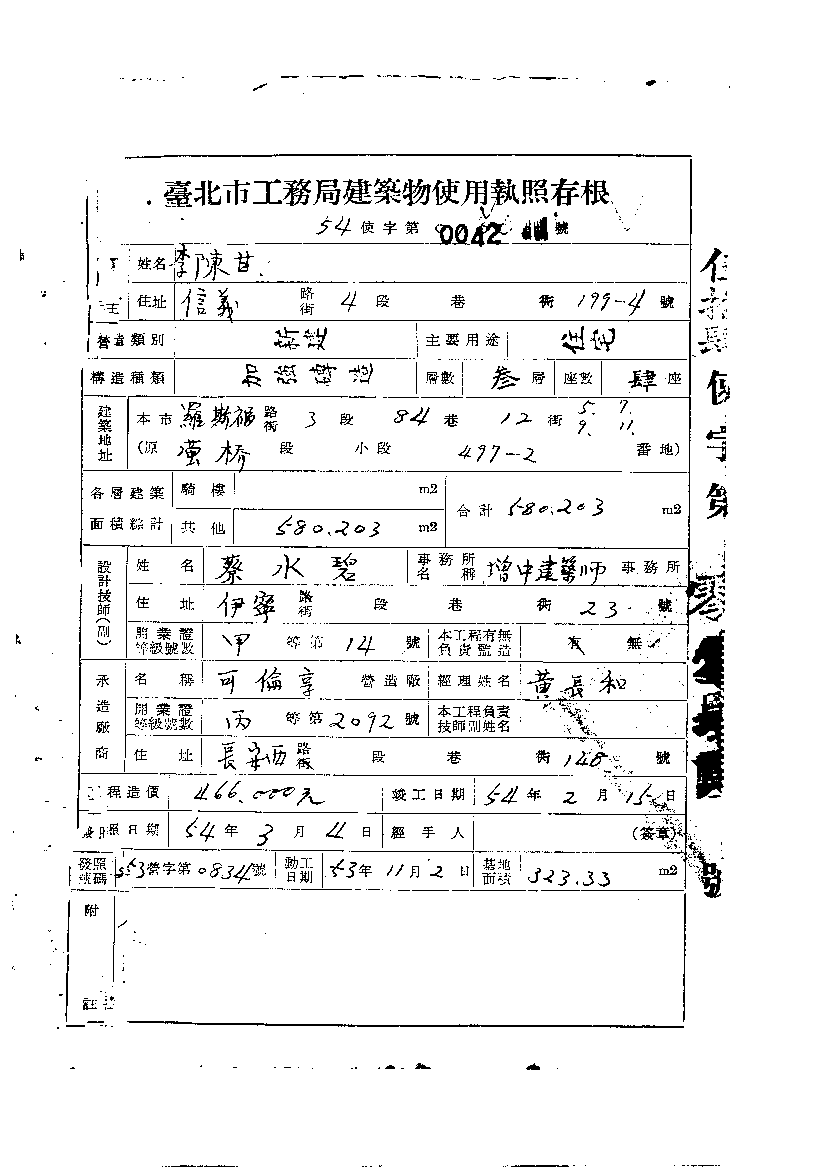 臺北市工務局建築物使用執照存根
54使字第0042號
姓名 李陳甘
住址 信義路街 4 段 巷 衖 199-4 號
營造類別 新造 主要用途 住宅
構造種類 加強磚造 層數 叁層 座數 肆座
建築地址 本市 羅斯福路街 3 段 84 巷 12 衖 5. 7. 9. 11.
(原 螢橋 段 小段 497-2 番地)
各層建築面積綜計 騎樓 m2 合計 580.203 m2
其他 580.203 m2
設計技師(副) 姓名 蔡水碧 事務所名稱 增中建築師事務所
住址 伊寧路街 段 巷 衖 23 號
開業證等級號數 甲等第 14 號 本工程有無負責監造 有 無
承造廠商 名稱 可倫享營造廠 經理姓名 黃長和
開業證等級號數 丙等第 2092 號 本工程負責技師副姓名
住址 長安西路街 段 巷 衖 148 號
工程造價 466.000元 竣工日期 54年 2月 15日
日期 54年 3月 4日 經手人 (簽章)
發照號碼 53營字第0834號 動工日期 53年 11月 2日 基地面積 323.33 m2
附註
使字第零
號